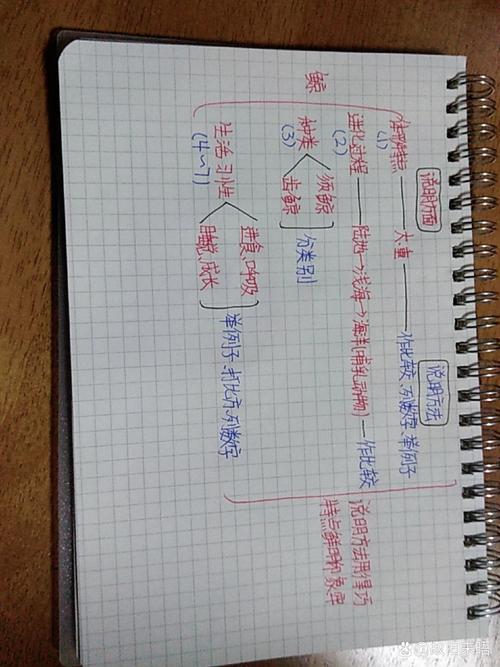 鲸
说明方面 说明方法
体形特点 (1) —— 大、重 —— 作比较、列数字、举例子
进化过程 (2) —— 陆地→浅海→海洋(哺乳动物) — 作比较
种类 (3) 须鲸 齿鲸 分类别
生活习性 (4~7) 进食、呼吸 睡觉、成长 举例子、打比方、列数字
说明方法用得巧
特点鲜明印象深